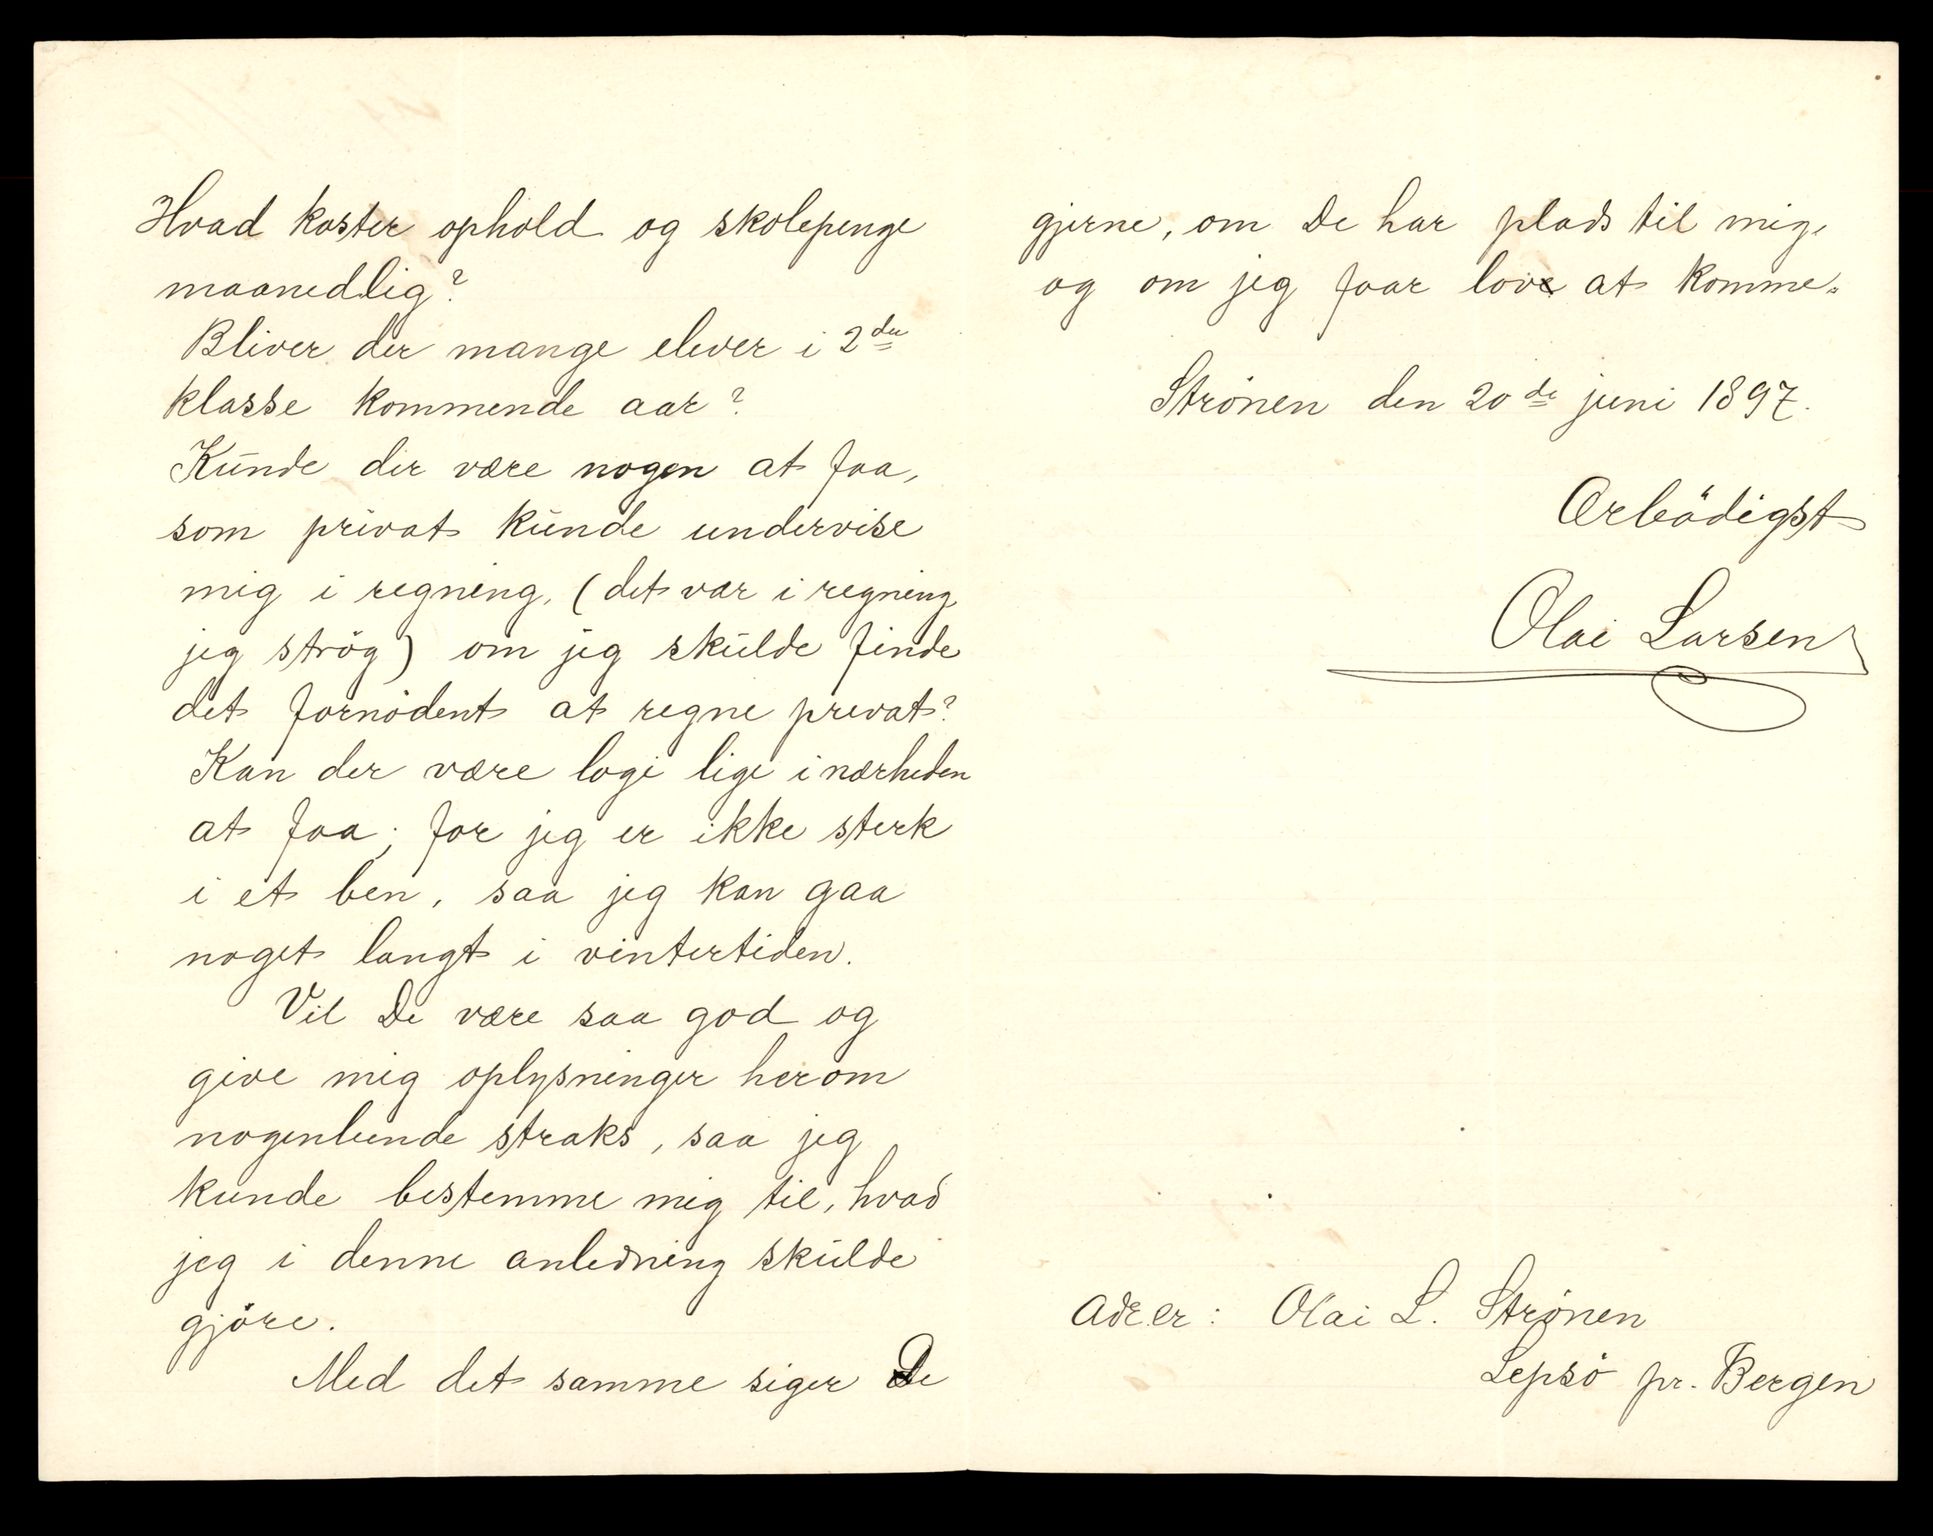 Hvad koster ophold og skolepenge
maanedlig?
Bliver der mange elever i 2den
klasse kommende aar?
Kunde der være nogen at faa,
som privat kunde undervise
mig i regning, (det var i regning
jeg strög) om jeg skulde finde
det fornödent at regne privat?
Kan der være logi lige i nærheden
at faa; for jeg er ikke sterk
i et ben, saa jeg kan gaa
noget langt i vintertiden.
Vil De være saa god og
give mig oplysninger herom
nogenlunde straks, saa jeg
kunde bestemme mig til, hvad
jeg i denne anledning skulde
gjöre.
Med det samme siger De
gjerne, om De har plads til mig,
og om jeg faar lov at komme.
Strönen den 20de juni 1897.
Ærbödigst
Olai Larsen
Adr. er: Olai L. Strönen
Lepsö pr. Bergen